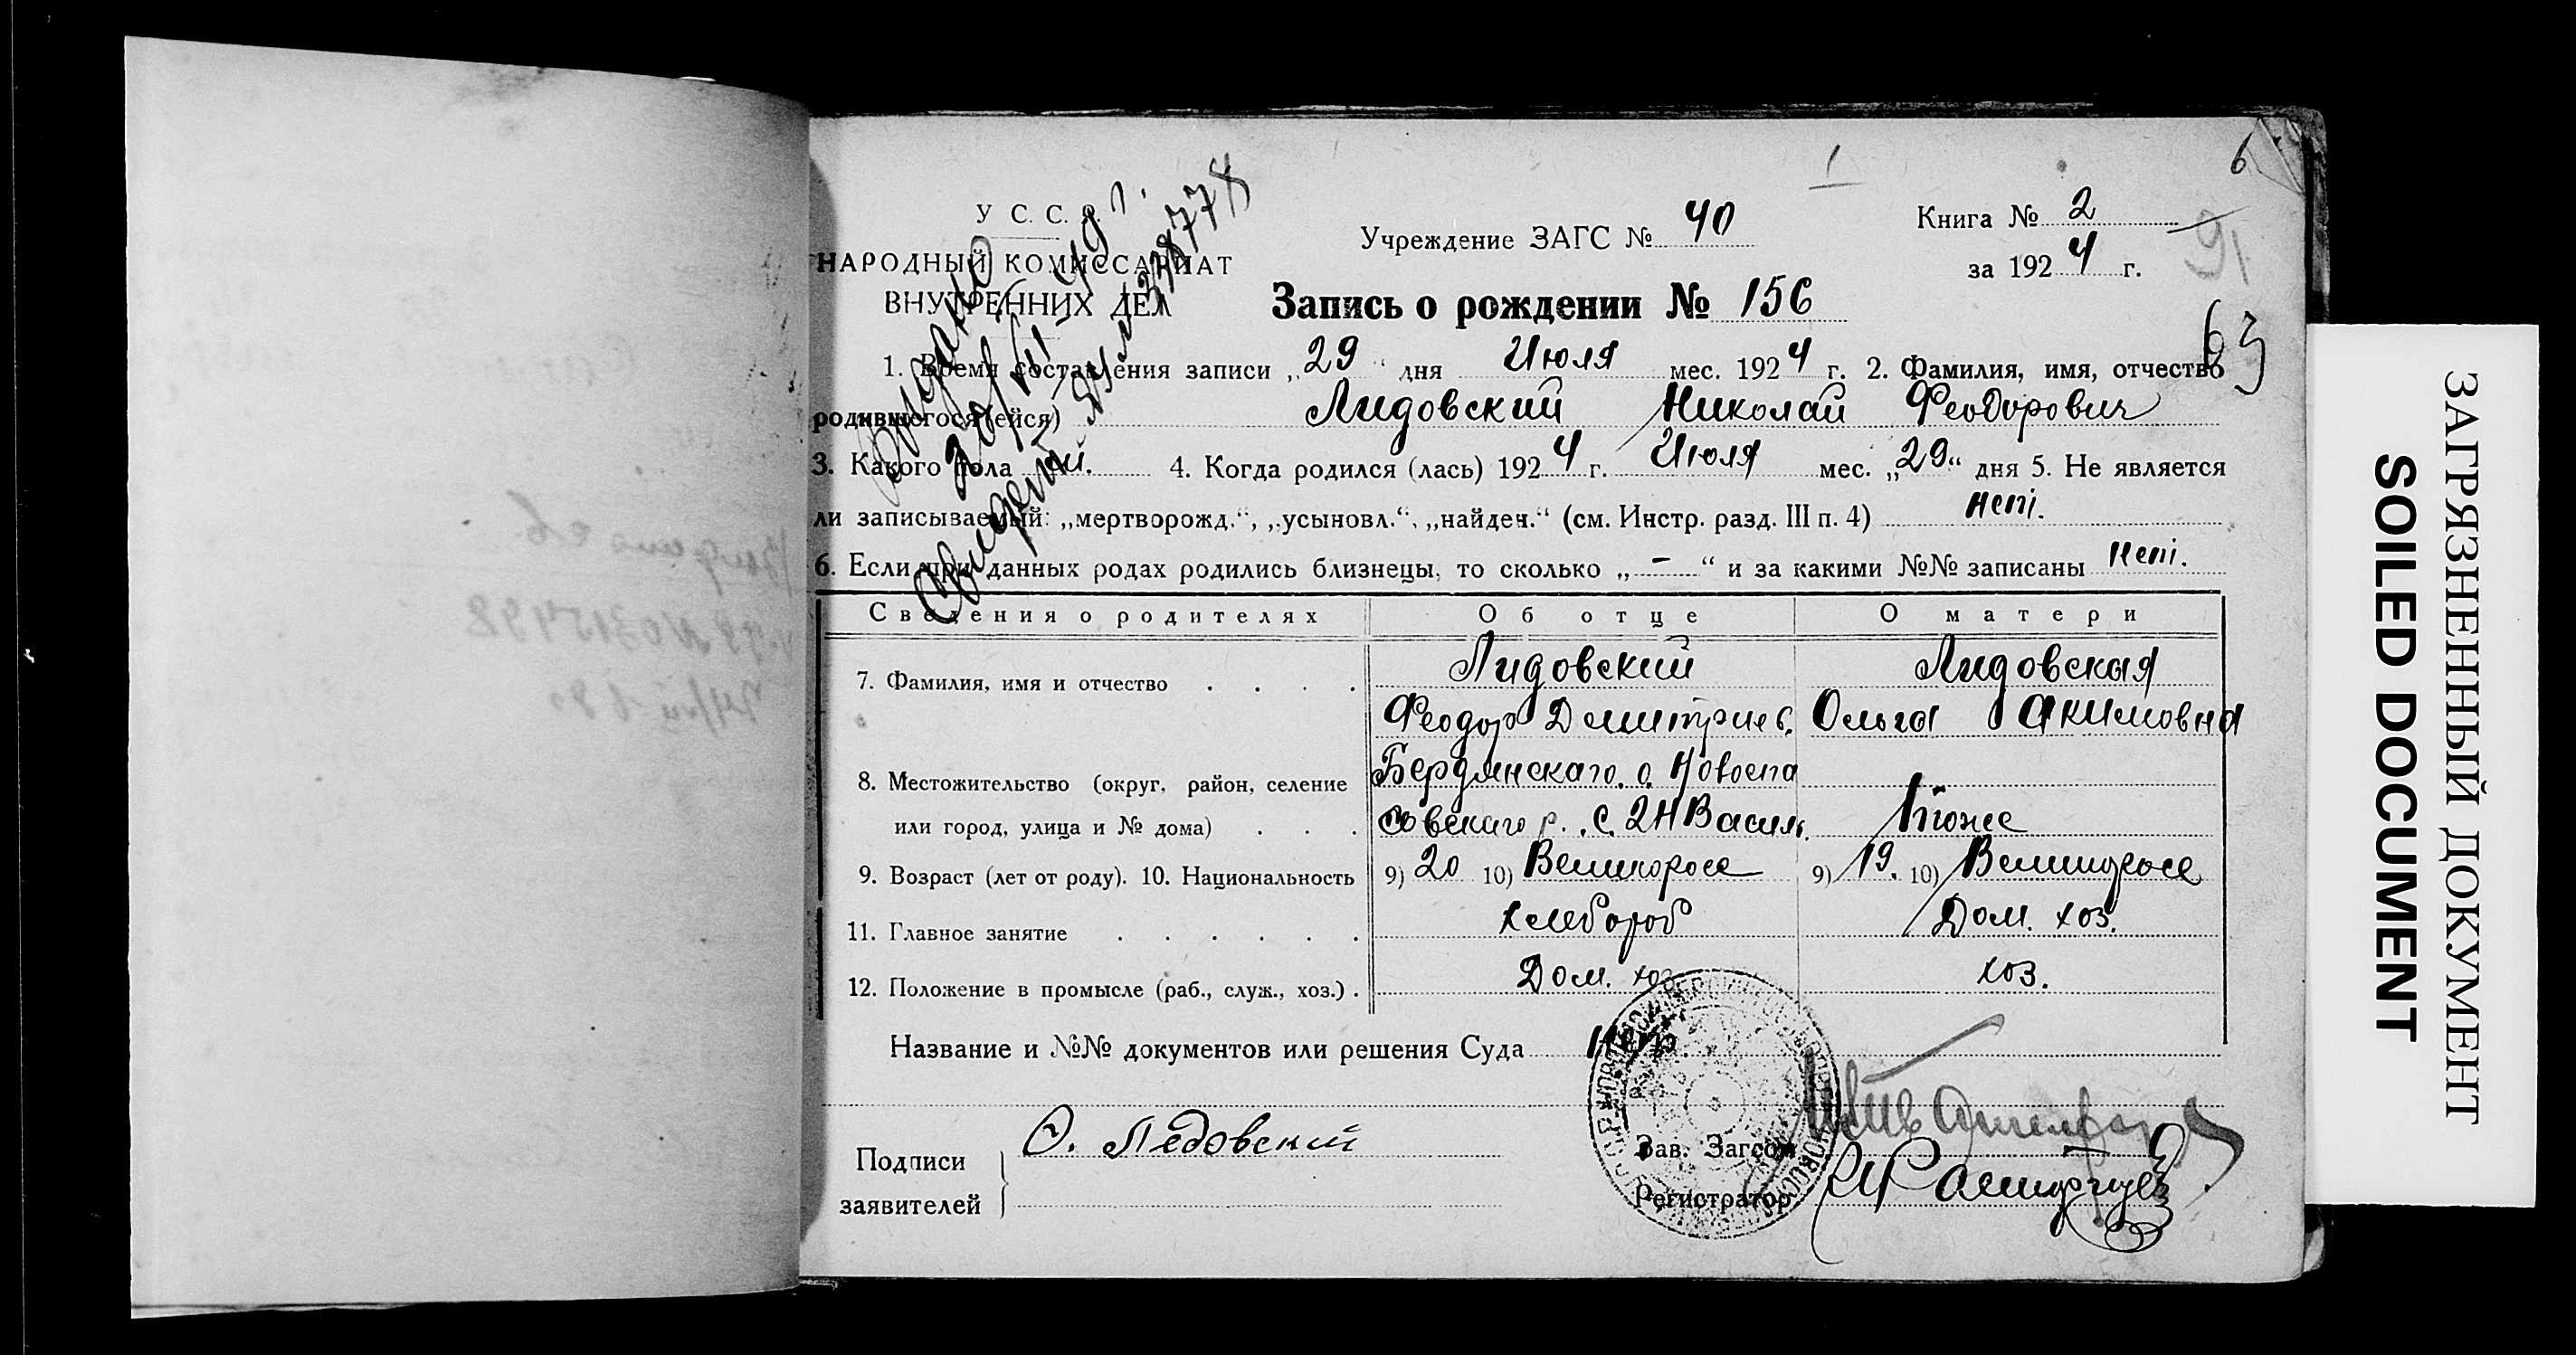 6
1
У С. С. Р.
НАРОДНЫЙ КОМИССАРИАТ
ВНУТРЕННИХ ДЕЛ
Выдано
Свидет.
Учреждение ЗАГС № 40
Книга № 2
за 1924 г.
91
63
Запись о рождении № 156
1. Время составления записи „29“ дня Июля мес. 1924 г. 2. Фамилия, имя, отчество
родившегося (ейся) Лидовский Николай Феодорович
3. Какого пола м. 4. Когда родился (лась) 1924 г. Июля мес. „29“ дня 5. Не является
ли записываемый: „мертворожд.“, „усыновл.“, „найден.“ (см. Инстр. разд. III п. 4) нет.
6. Если при данных родах родились близнецы, то сколько „–“ и за какими №№ записаны нет.
Сведения о родителях Об отце О матери
7. Фамилия, имя и отчество Лидовский Лидовская
Феодор Дмитриев. Ольга Акимовна
8. Местожительство (округ, район, селение Бердянскаго о. Новоспа
или город, улица и № дома) совскаго р. с. 2Н Василь. Тоже
9. Возраст (лет от роду). 10. Национальность 9) 20 10) Великоросс 9) 19. 10) Великоросс
11. Главное занятие хлебороб Дом. хоз.
12. Положение в промысле (раб., служ., хоз.) Дом. хоз. хоз.
Название и №№ документов или решения Суда нет
Подписи заявителей Ф. Ледовский
Зав. Загсом
Регистратор
ЗАГРЯЗНЕННЫЙ ДОКУМЕНТ
SOILED DOCUMENT